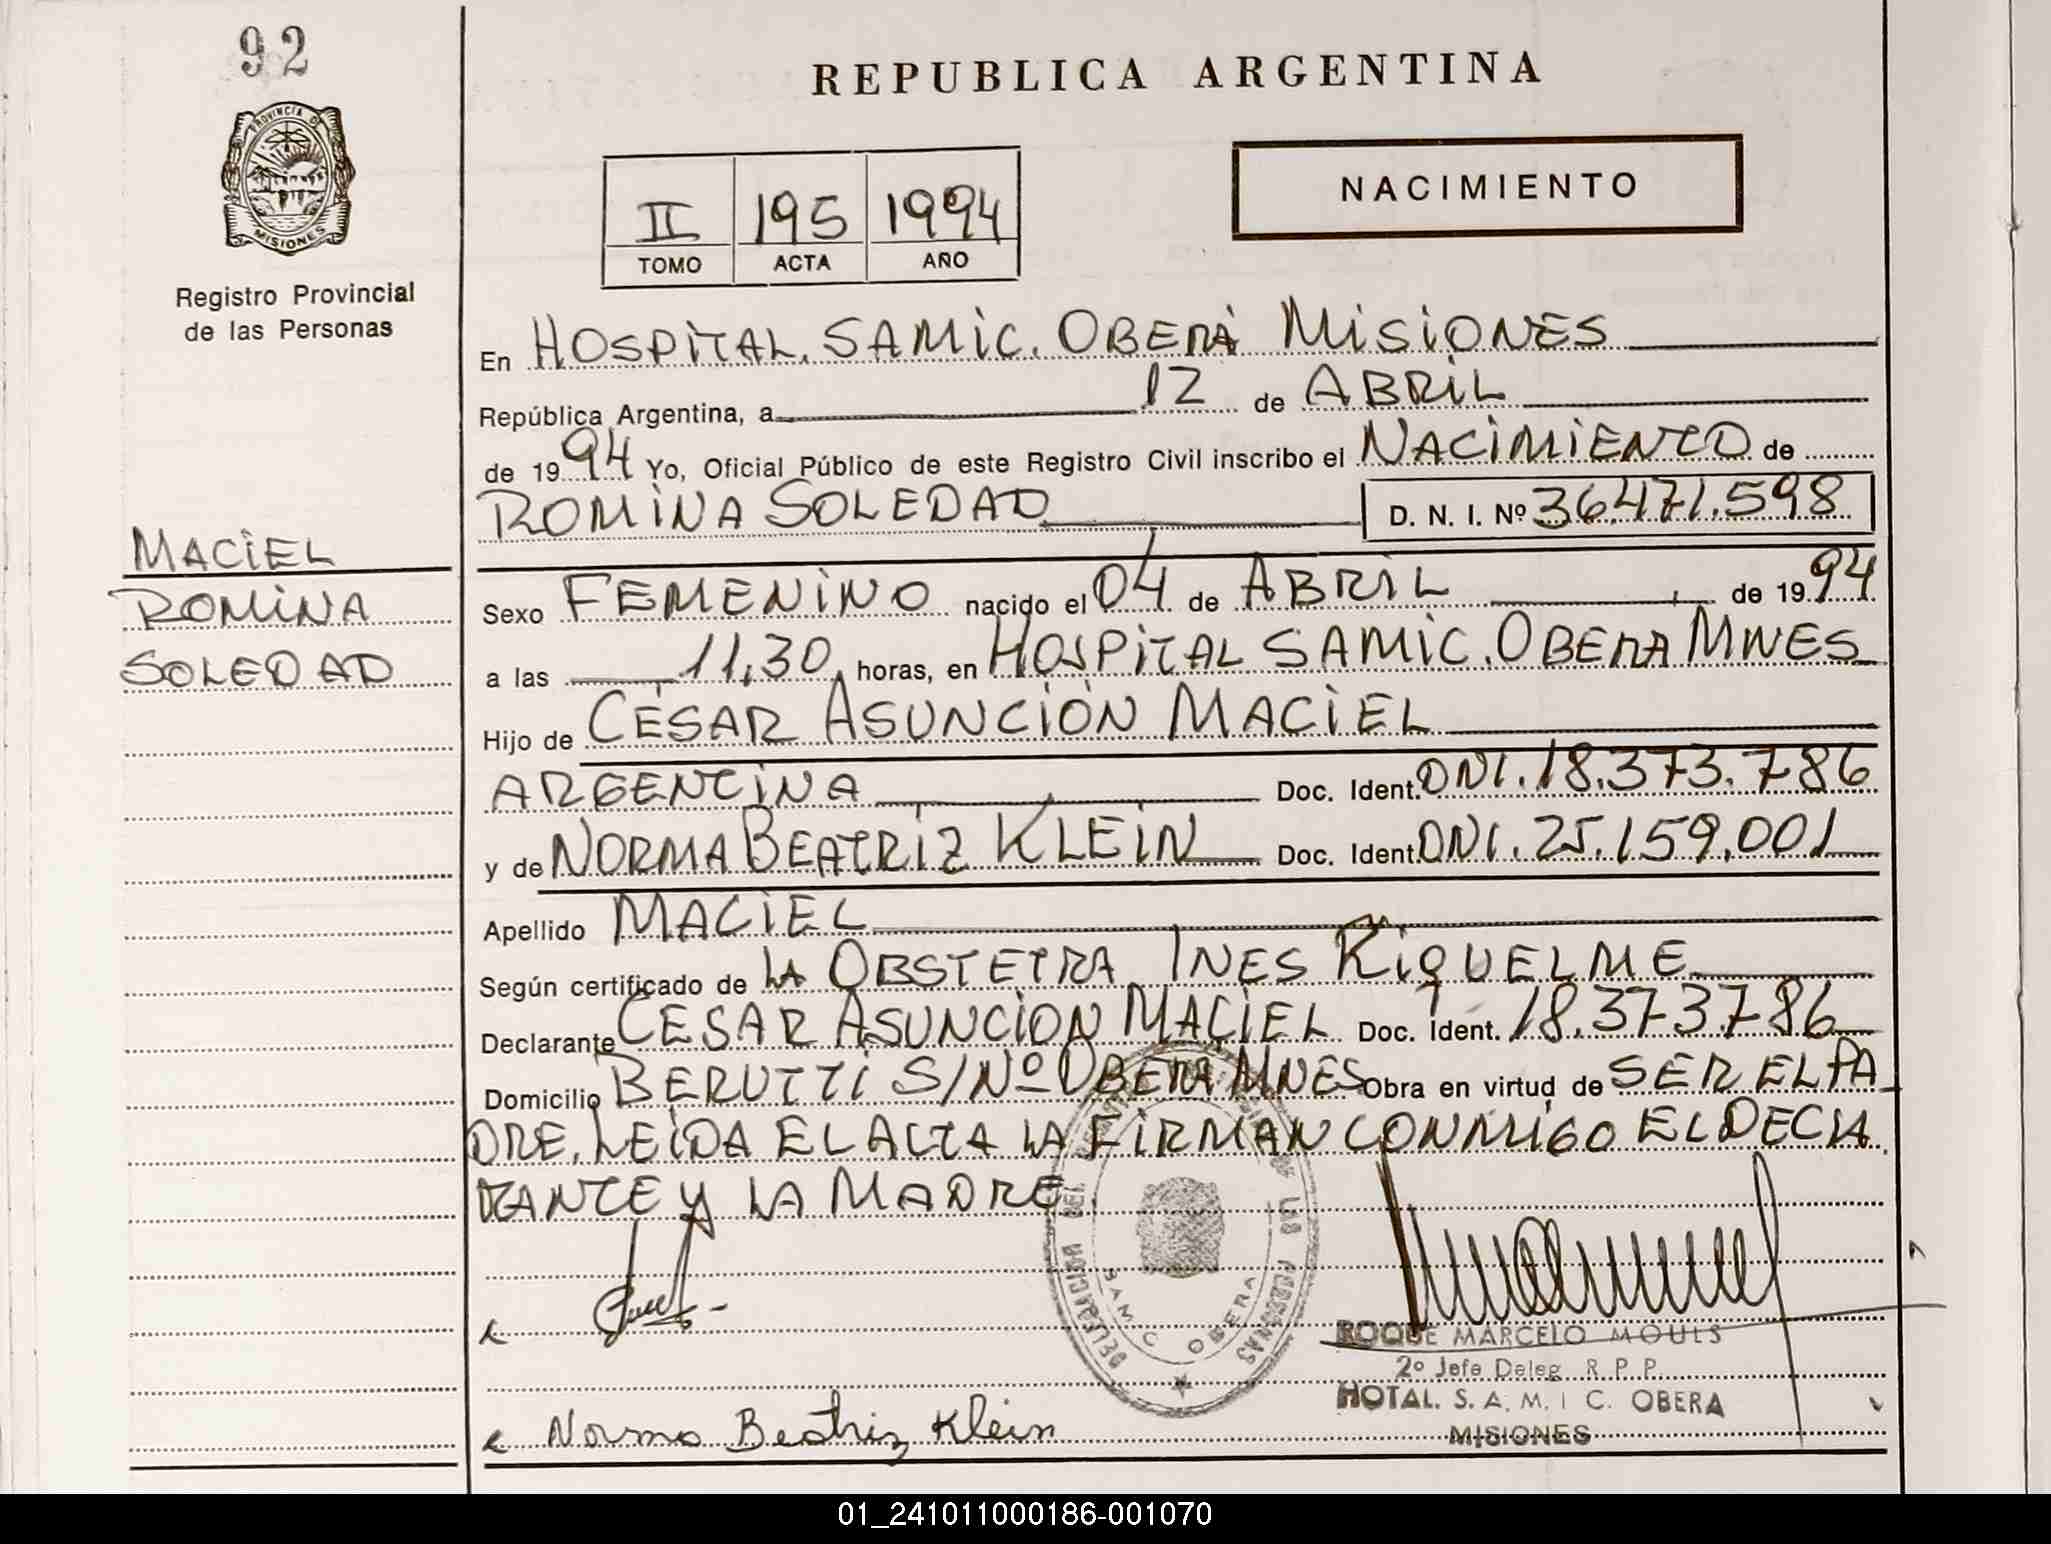 92
REPUBLICA ARGENTINA
PROVINCIA D
MISIONES
Registro Provincial
de las Personas
II 195 1994
TOMO ACTA AÑO
NACIMIENTO
En HOSPITAL. SAMIC. OBERÁ MISIONES
República Argentina, a 12 de ABRIL
de 1994 Yo, Oficial Público de este Registro Civil inscribo el NACIMIENTO de
ROMINA SOLEDAD D. N. I. Nº 36.471.598
MACIEL
ROMINA
SOLEDAD
Sexo FEMENINO nacido el 04 de ABRIL de 1994
a las 11,30 horas, en HOSPITAL SAMIC. OBERA MNES
Hijo de CÉSAR ASUNCIÓN MACIEL
ARGENTINA Doc. Ident. DNI. 18.373.786
y de NORMA BEATRIZ KLEIN Doc. Ident. DNI. 25.159.001
Apellido MACIEL
Según certificado de LA OBSTETRA INES RIQUELME
Declarante CESAR ASUNCION MACIEL Doc. Ident. 18.373.786
Domicilio BERUTTI S/Nº OBERA MNES Obra en virtud de SER EL PA
DRE. LEIDA EL ACTA LA FIRMAN CONMIGO EL DECLA
RANTE Y LA MADRE.
DELEGACION DEL LAS PERSONAS
SAMIC OBERA
ROQUE MARCELO MOULS
2º Jefe Deleg. R. P. P.
HOTAL. S. A. M. I C. OBERA
MISIONES
Norma Beatriz Klein
01_241011000186-001070